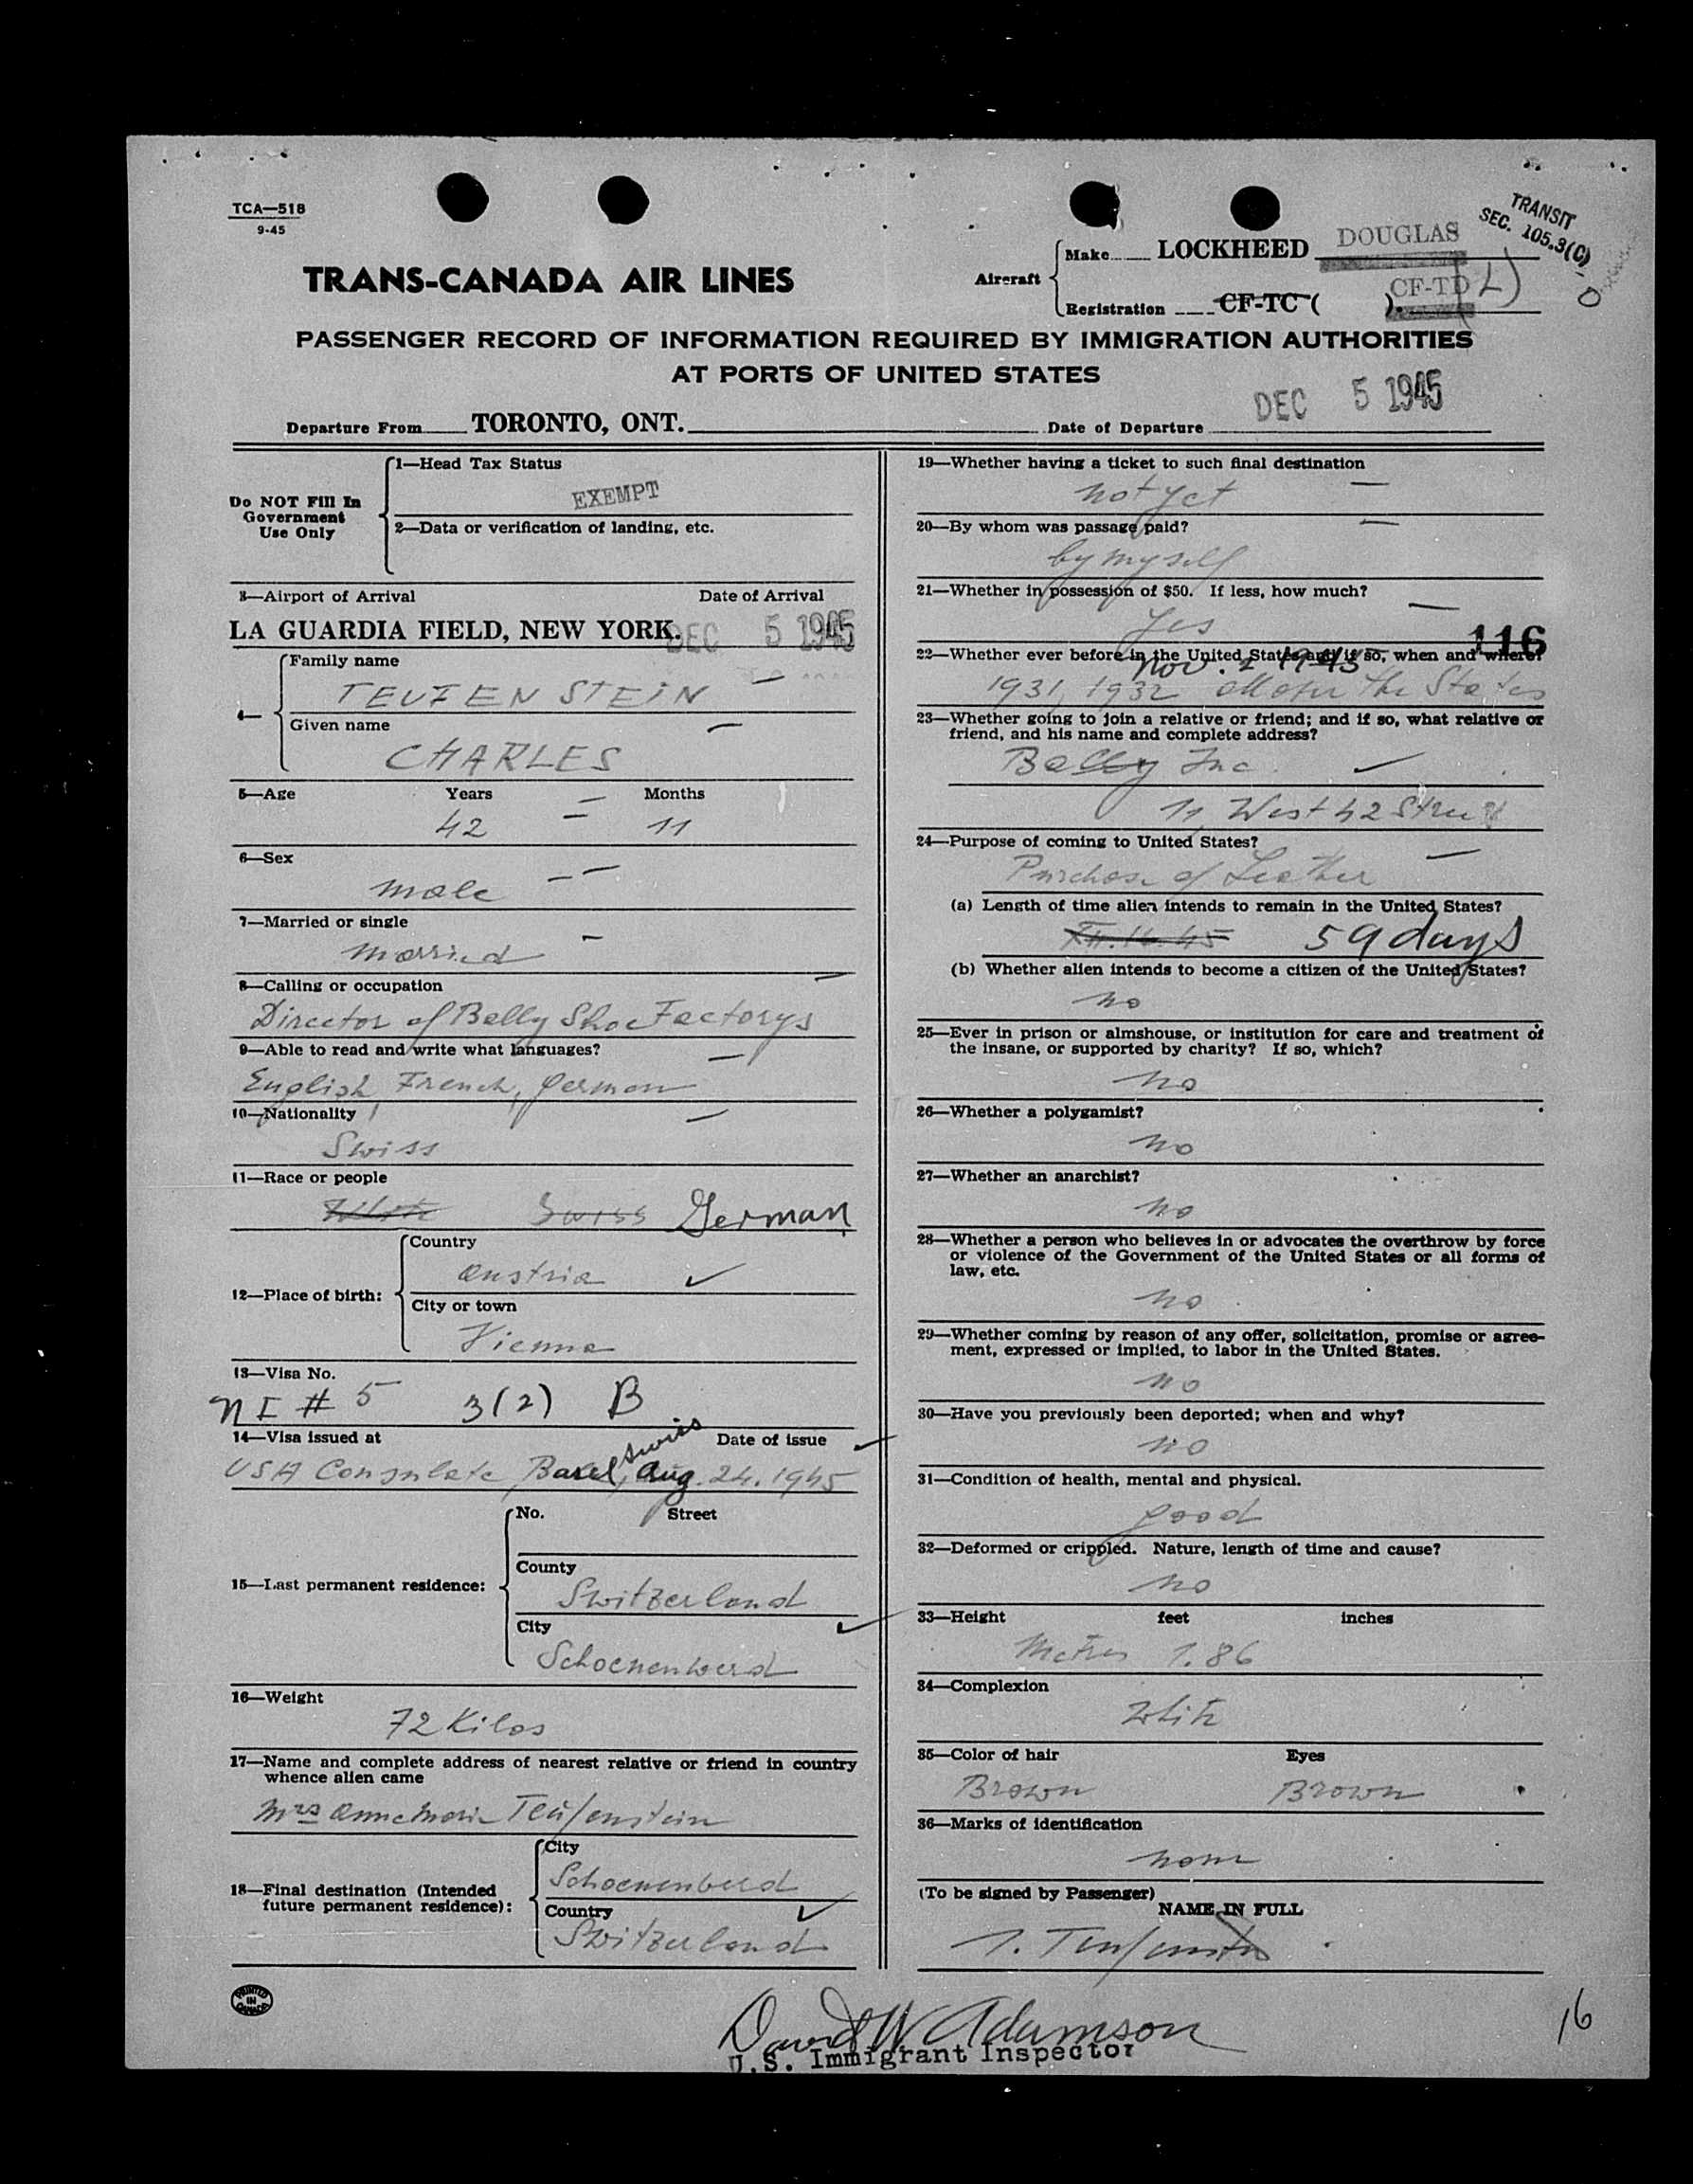 TCA—518
9-45
TRANSIT
SEC. 105.3(C)
TRANS-CANADA AIR LINES
Aircraft
Make LOCKHEED DOUGLAS
Registration CF-TC ( ). CF-TD (L)
PASSENGER RECORD OF INFORMATION REQUIRED BY IMMIGRATION AUTHORITIES
AT PORTS OF UNITED STATES
Departure From TORONTO, ONT.
Date of Departure DEC 5 1945
Do NOT Fill In
Government
Use Only
1—Head Tax Status
EXEMPT
2—Data or verification of landing, etc.
3—Airport of Arrival Date of Arrival
LA GUARDIA FIELD, NEW YORK. DEC 5 1945
4—
Family name
TEUFENSTEIN
Given name
CHARLES
5—Age Years Months
42 11
6—Sex
male
7—Married or single
married
8—Calling or occupation
Director of Bally Shoe Factorys
9—Able to read and write what languages?
English, French, german
10—Nationality
Swiss
11—Race or people
Swiss German
12—Place of birth:
Country
Austria
City or town
Vienna
13—Visa No.
NI # 5 3(2) B
14—Visa issued at Date of issue
USA Consulate, Basel, Swiss Aug. 24. 1945
15—Last permanent residence:
No. Street
County
Switzerland
City
Schoenenwerd
16—Weight
72 Kilos
17—Name and complete address of nearest relative or friend in country
whence alien came
Mrs Annemarie Teufenstein
18—Final destination (Intended
future permanent residence):
City
Schoenenwerd
Country
Switzerland
PRINTED
IN
CANADA
19—Whether having a ticket to such final destination
not yet
20—By whom was passage paid?
by myself
21—Whether in possession of $50. If less, how much?
Yes
116
22—Whether ever before in the United States and if so, when and where?
Nov. 2 1945
1931, 1932 all over the States
23—Whether going to join a relative or friend; and if so, what relative or
friend, and his name and complete address?
Bally Inc.
11, West 42 Street
24—Purpose of coming to United States?
Purchase of Leather
(a) Length of time alien intends to remain in the United States?
59 days
(b) Whether alien intends to become a citizen of the United States?
no
25—Ever in prison or almshouse, or institution for care and treatment of
the insane, or supported by charity? If so, which?
no
26—Whether a polygamist?
no
27—Whether an anarchist?
no
28—Whether a person who believes in or advocates the overthrow by force
or violence of the Government of the United States or all forms of
law, etc.
no
29—Whether coming by reason of any offer, solicitation, promise or agree-
ment, expressed or implied, to labor in the United States.
no
30—Have you previously been deported; when and why?
no
31—Condition of health, mental and physical.
good
32—Deformed or crippled. Nature, length of time and cause?
no
33—Height feet inches
Metres 1.86
34—Complexion
35—Color of hair Eyes
Brown Brown
36—Marks of identification
none
(To be signed by Passenger)
NAME IN FULL
David W Adamson
U.S. Immigrant Inspector
16